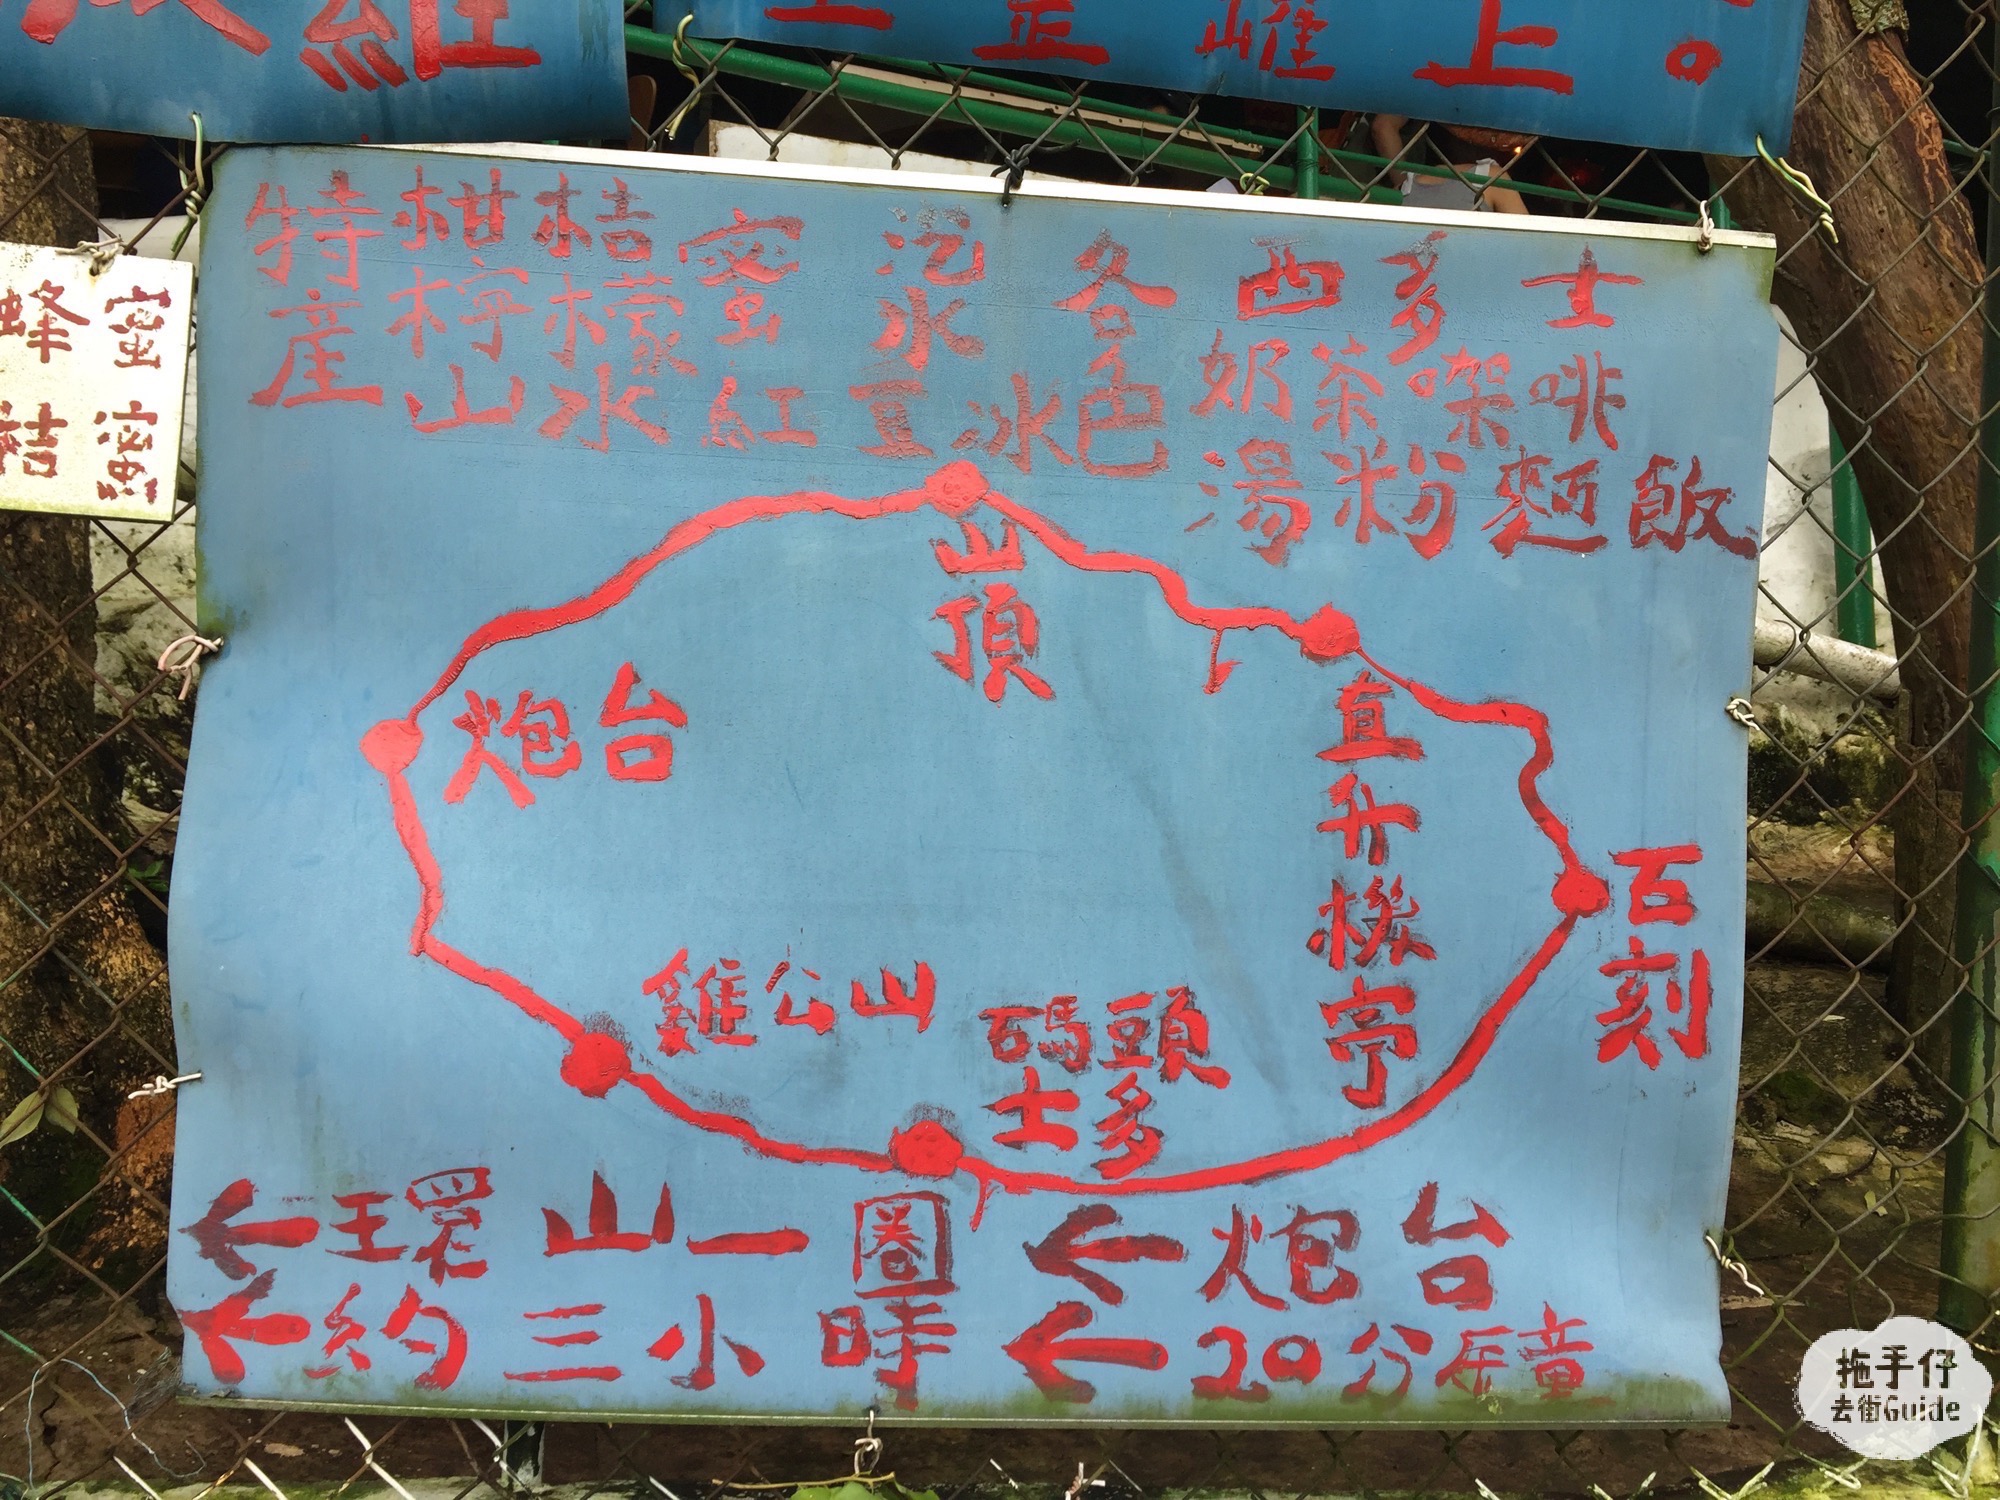 特產 柑桔蜜 汽水 各 西多士
檸檬 奶茶 咖啡
山水 紅豆冰 色 湯粉麵飯
山頂
直升機亭
炮台
石刻
雞公山
碼頭
士多
←環山一圈 ←炮台
←約三小時 ←20分鐘
蜂蜜
桔蜜
上。
拖手仔
去街Guide